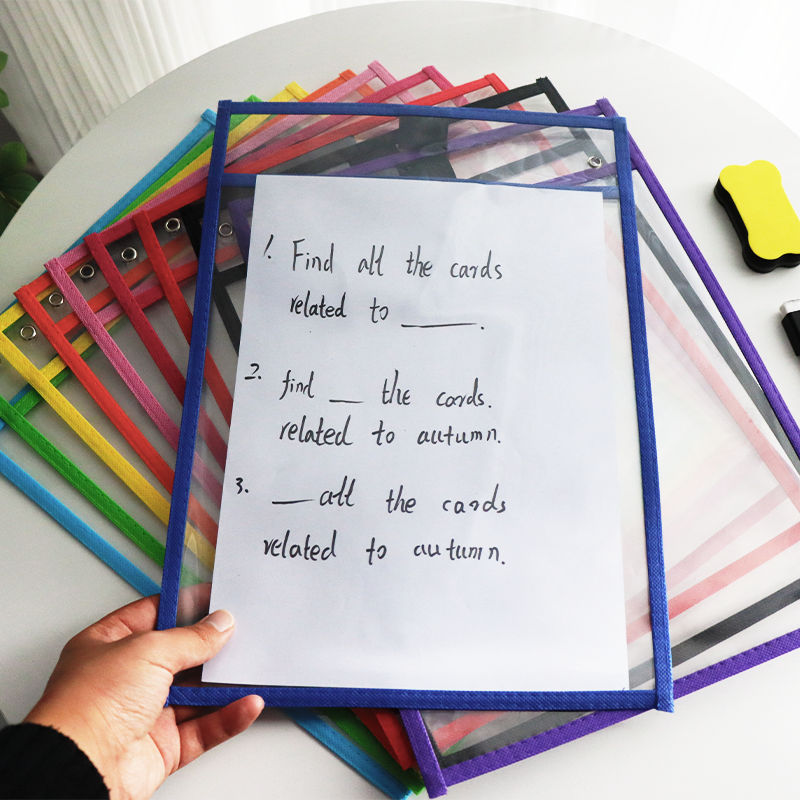 1. Find all the cards
related to ____.
2. find __ the cards.
related to autumn.
3. ___ all the cards
related to autumn.